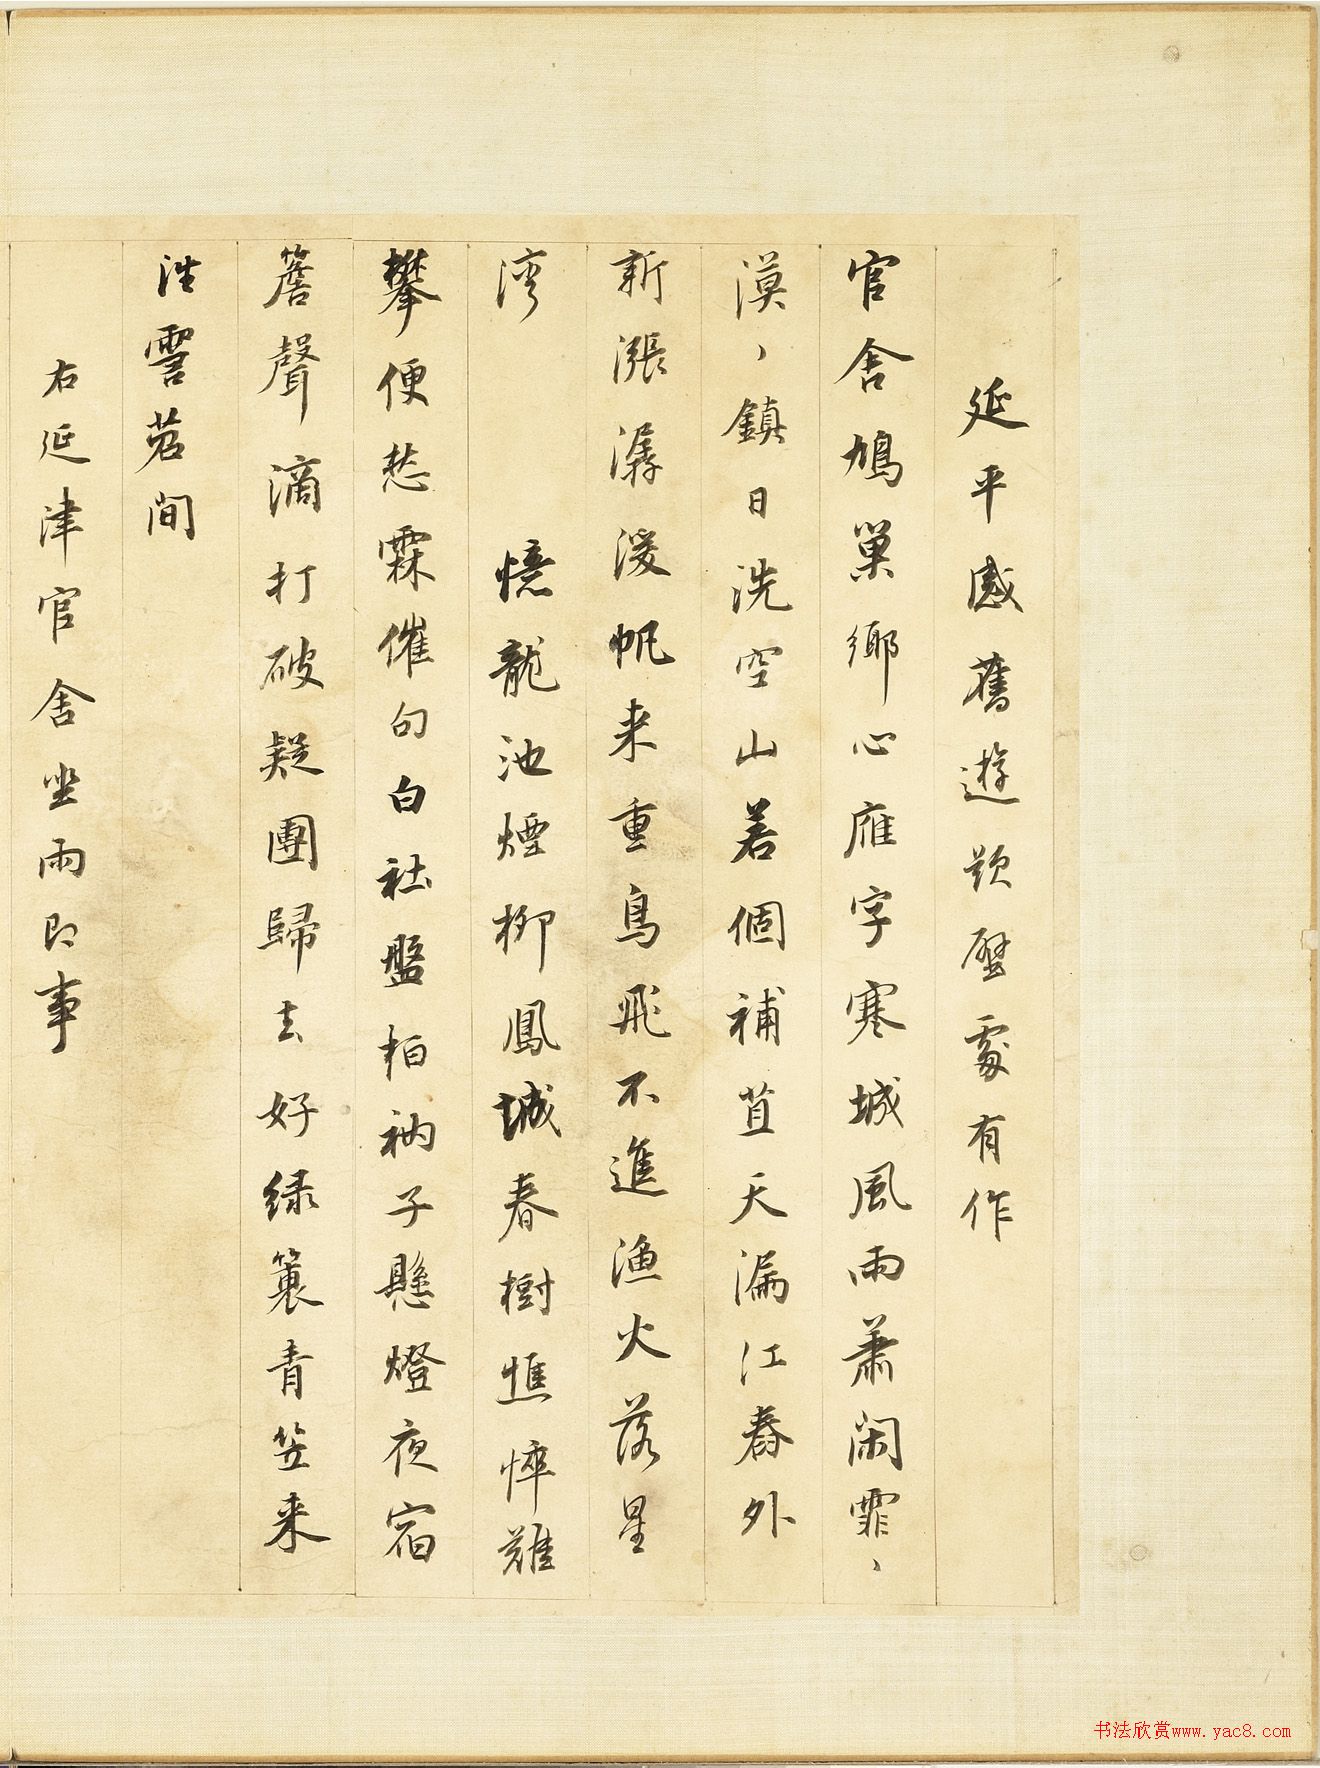 延平感舊遊題壁處有作
官舍鳩巢鄉心雁字寒城風雨蕭閑霏、
漠、鎮日洗空山若個補苴天漏江春外
新漲潺湲帆来重鳥飛不進漁火落星
湾　憶龍池煙柳鳳城春樹憔悴難
攀便愁霖催句白社盤柏衲子懸燈夜宿
簷聲滴打破疑團歸去好绿簑青笠来
往霅苕间
右延津官舍坐雨即事
书法欣赏www.yac8.com